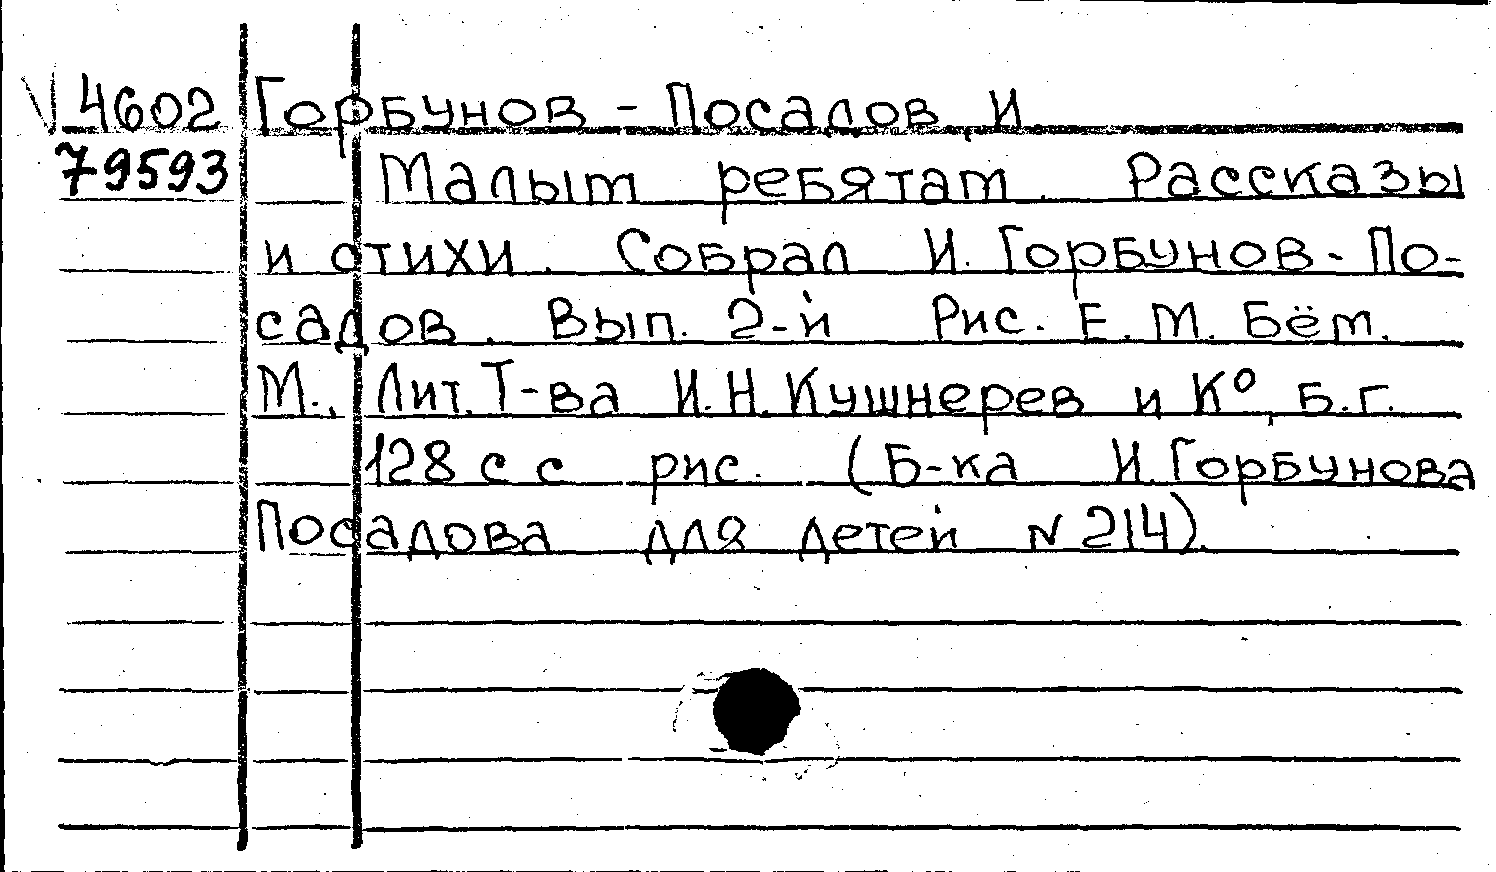 V 4602 Горбунов - Посадов, И.
79593 Малым ребятам. Рассказы
и стихи. Собрал И. Горбунов-По-
садов. Вып. 2-й Рис. Е. М. Бём.
М., Лит. Т-ва И. Н. Кушнерев и К°, Б.г.
128 с с рис. (Б-ка И. Горбунова
Посадова для детей N 214).